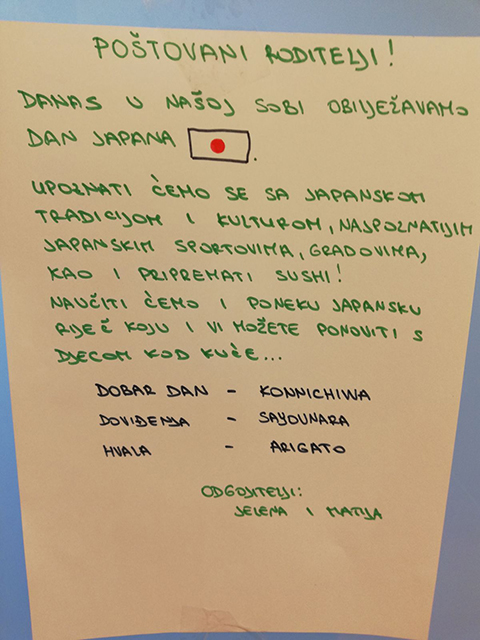 POŠTOVANI RODITELJI!
DANAS U NAŠOJ SOBI OBILJEŽAVAMO
DAN JAPANA .
UPOZNATI ĆEMO SE SA JAPANSKOM
TRADICIJOM I KULTUROM, NAJPOZNATIJIM
JAPANSKIM SPORTOVIMA, GRADOVIMA,
KAO I PRIPREMATI SUSHI!
NAUČITI ĆEMO I PONEKU JAPANSKU
RIJEČ KOJU I VI MOŽETE PONOVITI S
DJECOM KOD KUĆE...
DOBAR DAN - KONNICHIWA
DOVIĐENJA - SAYOUNARA
HVALA - ARIGATO
ODGOJITELJI:
JELENA I MATIJA